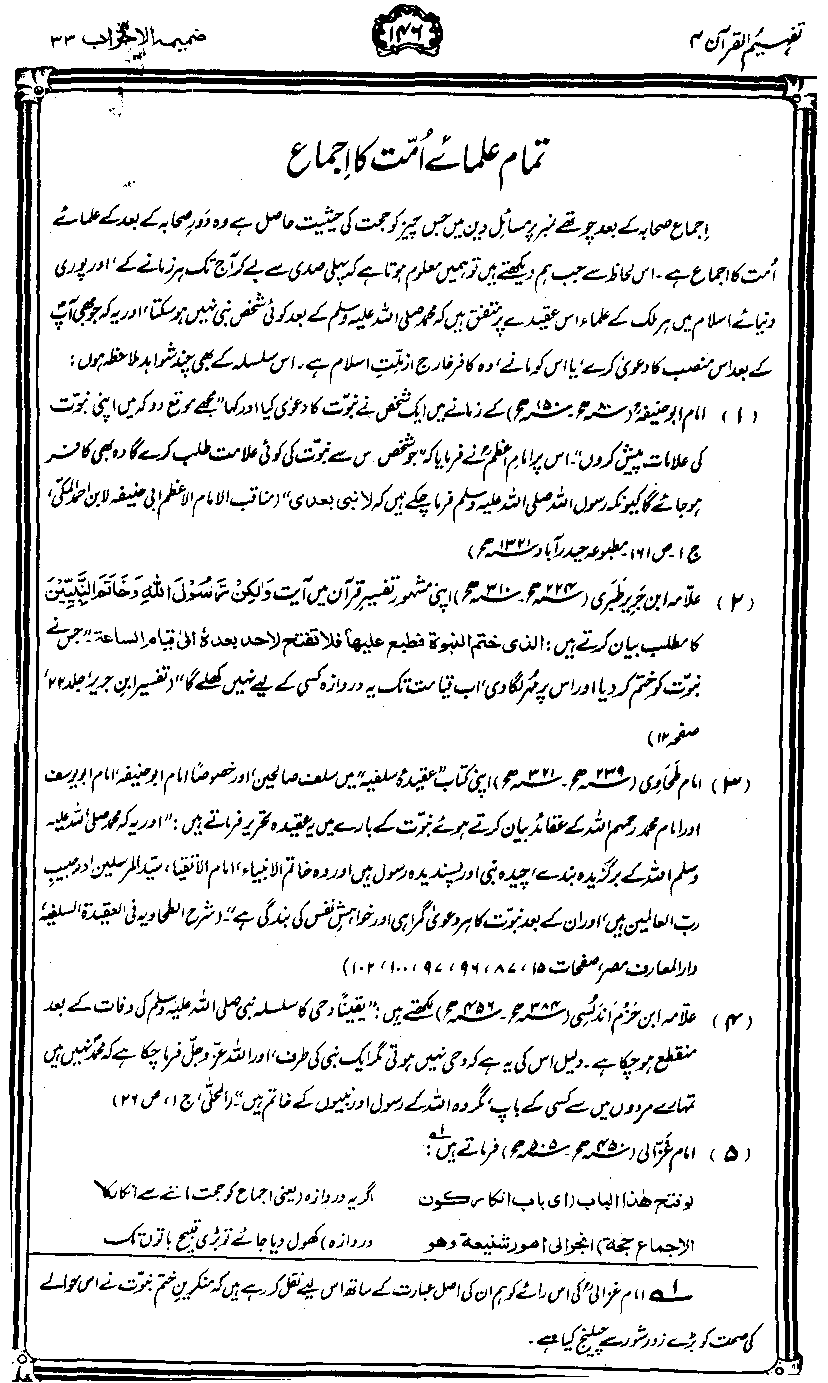 تفہیم القرآن ۴
۱۴۶
ضمیمہ الاحزاب ۳۳
تمام علمائے اُمّت کا اِجماع
اِجماع صحابہ کے بعد چوتھے نمبر پر مسائل دین میں جس چیز کو حجت کی حیثیت حاصل ہے وہ دَورِ صحابہ کے بعد کے علمائے
اُمت کا اجماع ہے۔ اس لحاظ سے جب ہم دیکھتے ہیں تو ہمیں معلوم ہوتا ہے کہ پہلی صدی سے لے کر آج تک ہر زمانے کے، اور پوری
دنیائے اسلام میں ہر ملک کے علماء اس عقیدے پر متفق ہیں کہ محمد صلی اللہ علیہ وسلم کے بعد کوئی شخص نبی نہیں ہو سکتا، اور یہ کہ جو بھی آپؐ
کے بعد اس منصب کا دعویٰ کرے، یا اس کو مانے، وہ کافر خارج از ملّتِ اسلام ہے۔ اس سلسلہ کے بھی چند شواہد ملاحظہ ہوں:
(۱) امام ابو حنیفہؒ (۸۰ھ۔ ۱۵۰ھ) کے زمانے میں ایک شخص نے نبوّت کا دعویٰ کیا اور کہا "مجھے موقع دو کہ میں اپنی نبوّت
کی علامات پیش کروں"۔ اس پر امام اعظمؒ نے فرمایا کہ "جو شخص اس سے نبوّت کی کوئی علامت طلب کرے گا وہ بھی کافر
ہو جائے گا کیونکہ رسول اللہ صلی اللہ علیہ وسلم فرما چکے ہیں کہ لا نبی بعدی" (مناقب الامام الاعظم ابی حنیفہ لابن احمد المکّی،
ج ۱۔ ص ۱۶۱۔ مطبوعہ حیدرآباد ۱۳۲۱ھ)
(۲) علّامہ ابن جریر طَبَری (۲۲۴ھ۔ ۳۱۰ھ) اپنی مشہور تفسیرِ قرآن میں آیت وَلٰکِنْ رَّسُوْلَ اللّٰہِ وَخَاتَمَ النَّبِیّٖنَ
کا مطلب بیان کرتے ہیں: الذی ختم النبوۃ فطبع علیھا فلا تفتح لاحد بعدہٗ الیٰ قیام الساعۃ۔ "جس نے
نبوّت کو ختم کر دیا اور اس پر مُہر لگا دی، اب قیامت تک یہ دروازہ کسی کے لیے نہیں کھلے گا" (تفسیر ابن جریر، جلد ۲۲،
صفحہ ۱۲)
(۳) امام طحَاوی (۲۳۹ھ۔ ۳۲۱ھ) اپنی کتاب "عقیدۂ سلفیہ" میں سلف صالحین، اور خصوصاً امام ابو حنیفہ، امام ابو یوسف
اور امام محمد رحمہم اللہ کے عقائد بیان کرتے ہوئے نبوّت کے بارے میں یہ عقیدہ تحریر فرماتے ہیں: "اور یہ کہ محمد صلی اللہ علیہ
وسلم اللہ کے برگزیدہ بندے، چیدہ نبی اور پسندیدہ رسول ہیں اور وہ خاتم الانبیاء، امام الاتقیاء، سیّد المرسلین اور حبیبِ
ربّ العالمین ہیں، اور ان کے بعد نبوّت کا ہر دعویٰ گمراہی اور خواہشِ نفس کی بندگی ہے"۔ (شرح الطحاویہ فی العقیدۃ السلفیہ،
دار المعارف مصر، صفحات ۱۵، ۸۷، ۹۶، ۹۷، ۱۰۰، ۱۰۲)
(۴) علّامہ ابن حَزْم اَندَلُسی (۳۸۴ھ۔ ۴۵۶ھ) لکھتے ہیں: "یقیناً وحی کا سلسلہ نبی صلی اللہ علیہ وسلم کی وفات کے بعد
منقطع ہو چکا ہے۔ دلیل اس کی یہ ہے کہ وحی نہیں ہوتی مگر ایک نبی کی طرف، اور اللہ عزّ وجلّ فرما چکا ہے کہ محمدؐ نہیں ہیں
تمہارے مردوں میں سے کسی کے باپ، مگر وہ اللہ کے رسول اور نبیوں کے خاتم ہیں"۔ (المحلّٰی، ج ۱، ص ۲۶)
(۵) امام غزّالی (۴۵۰ھ۔ ۵۰۵ھ) فرماتے ہیں ۱؎:
لو فتح ھذا الباب (ای باب انکار کون اگر یہ دروازہ (یعنی اجماع کو حجت ماننے سے انکار کا
الاجماع حجۃ) انجر الی امور شنیعۃ وھو دروازہ) کھول دیا جائے تو بڑی قبیح باتوں تک
۱؎ امام غزالیؒ کی اس رائے کو ہم ان کی اصل عبارت کے ساتھ اس لیے نقل کر رہے ہیں کہ منکرینِ ختم نبوّت نے اس حوالے
کی صحت کو بڑے زور شور سے چیلنج کیا ہے۔